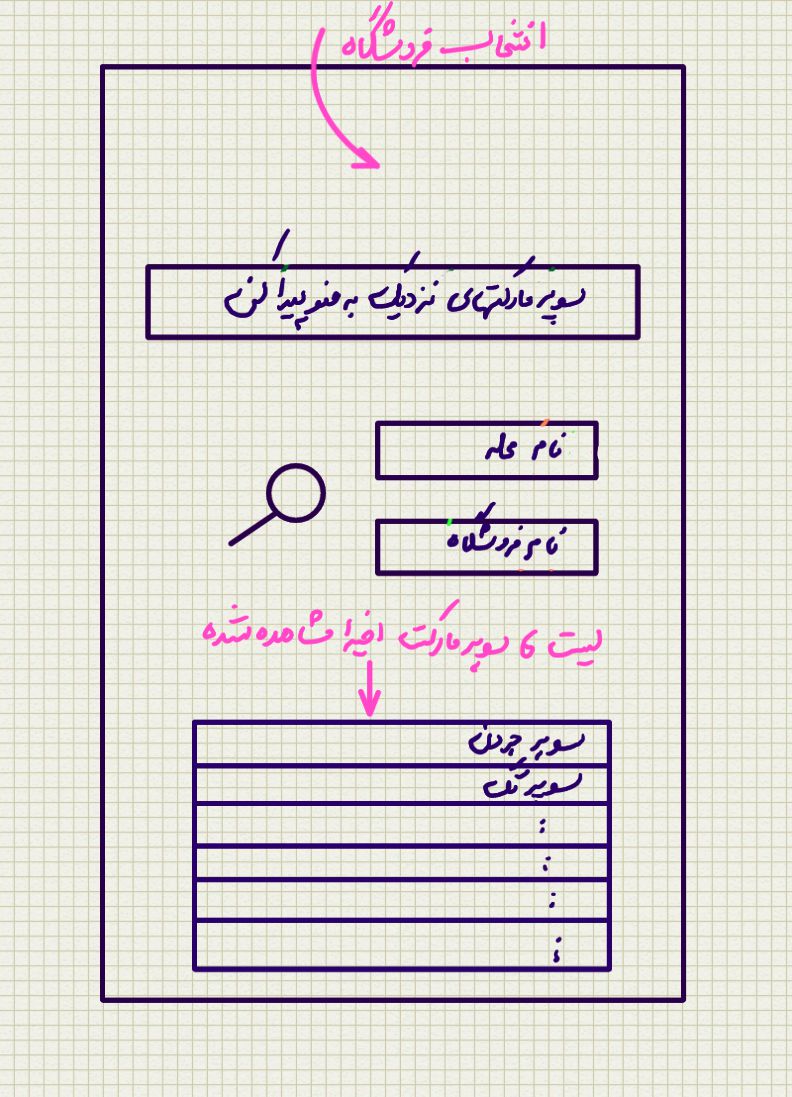 انتخاب فروشگاه
سوپر مارکتهای نزدیک به منو پیدا کن
نام محله
نام فروشگاه
لیست 6 سوپر مارکت اخیرا مشاهده شده
سوپر
سوپر تک